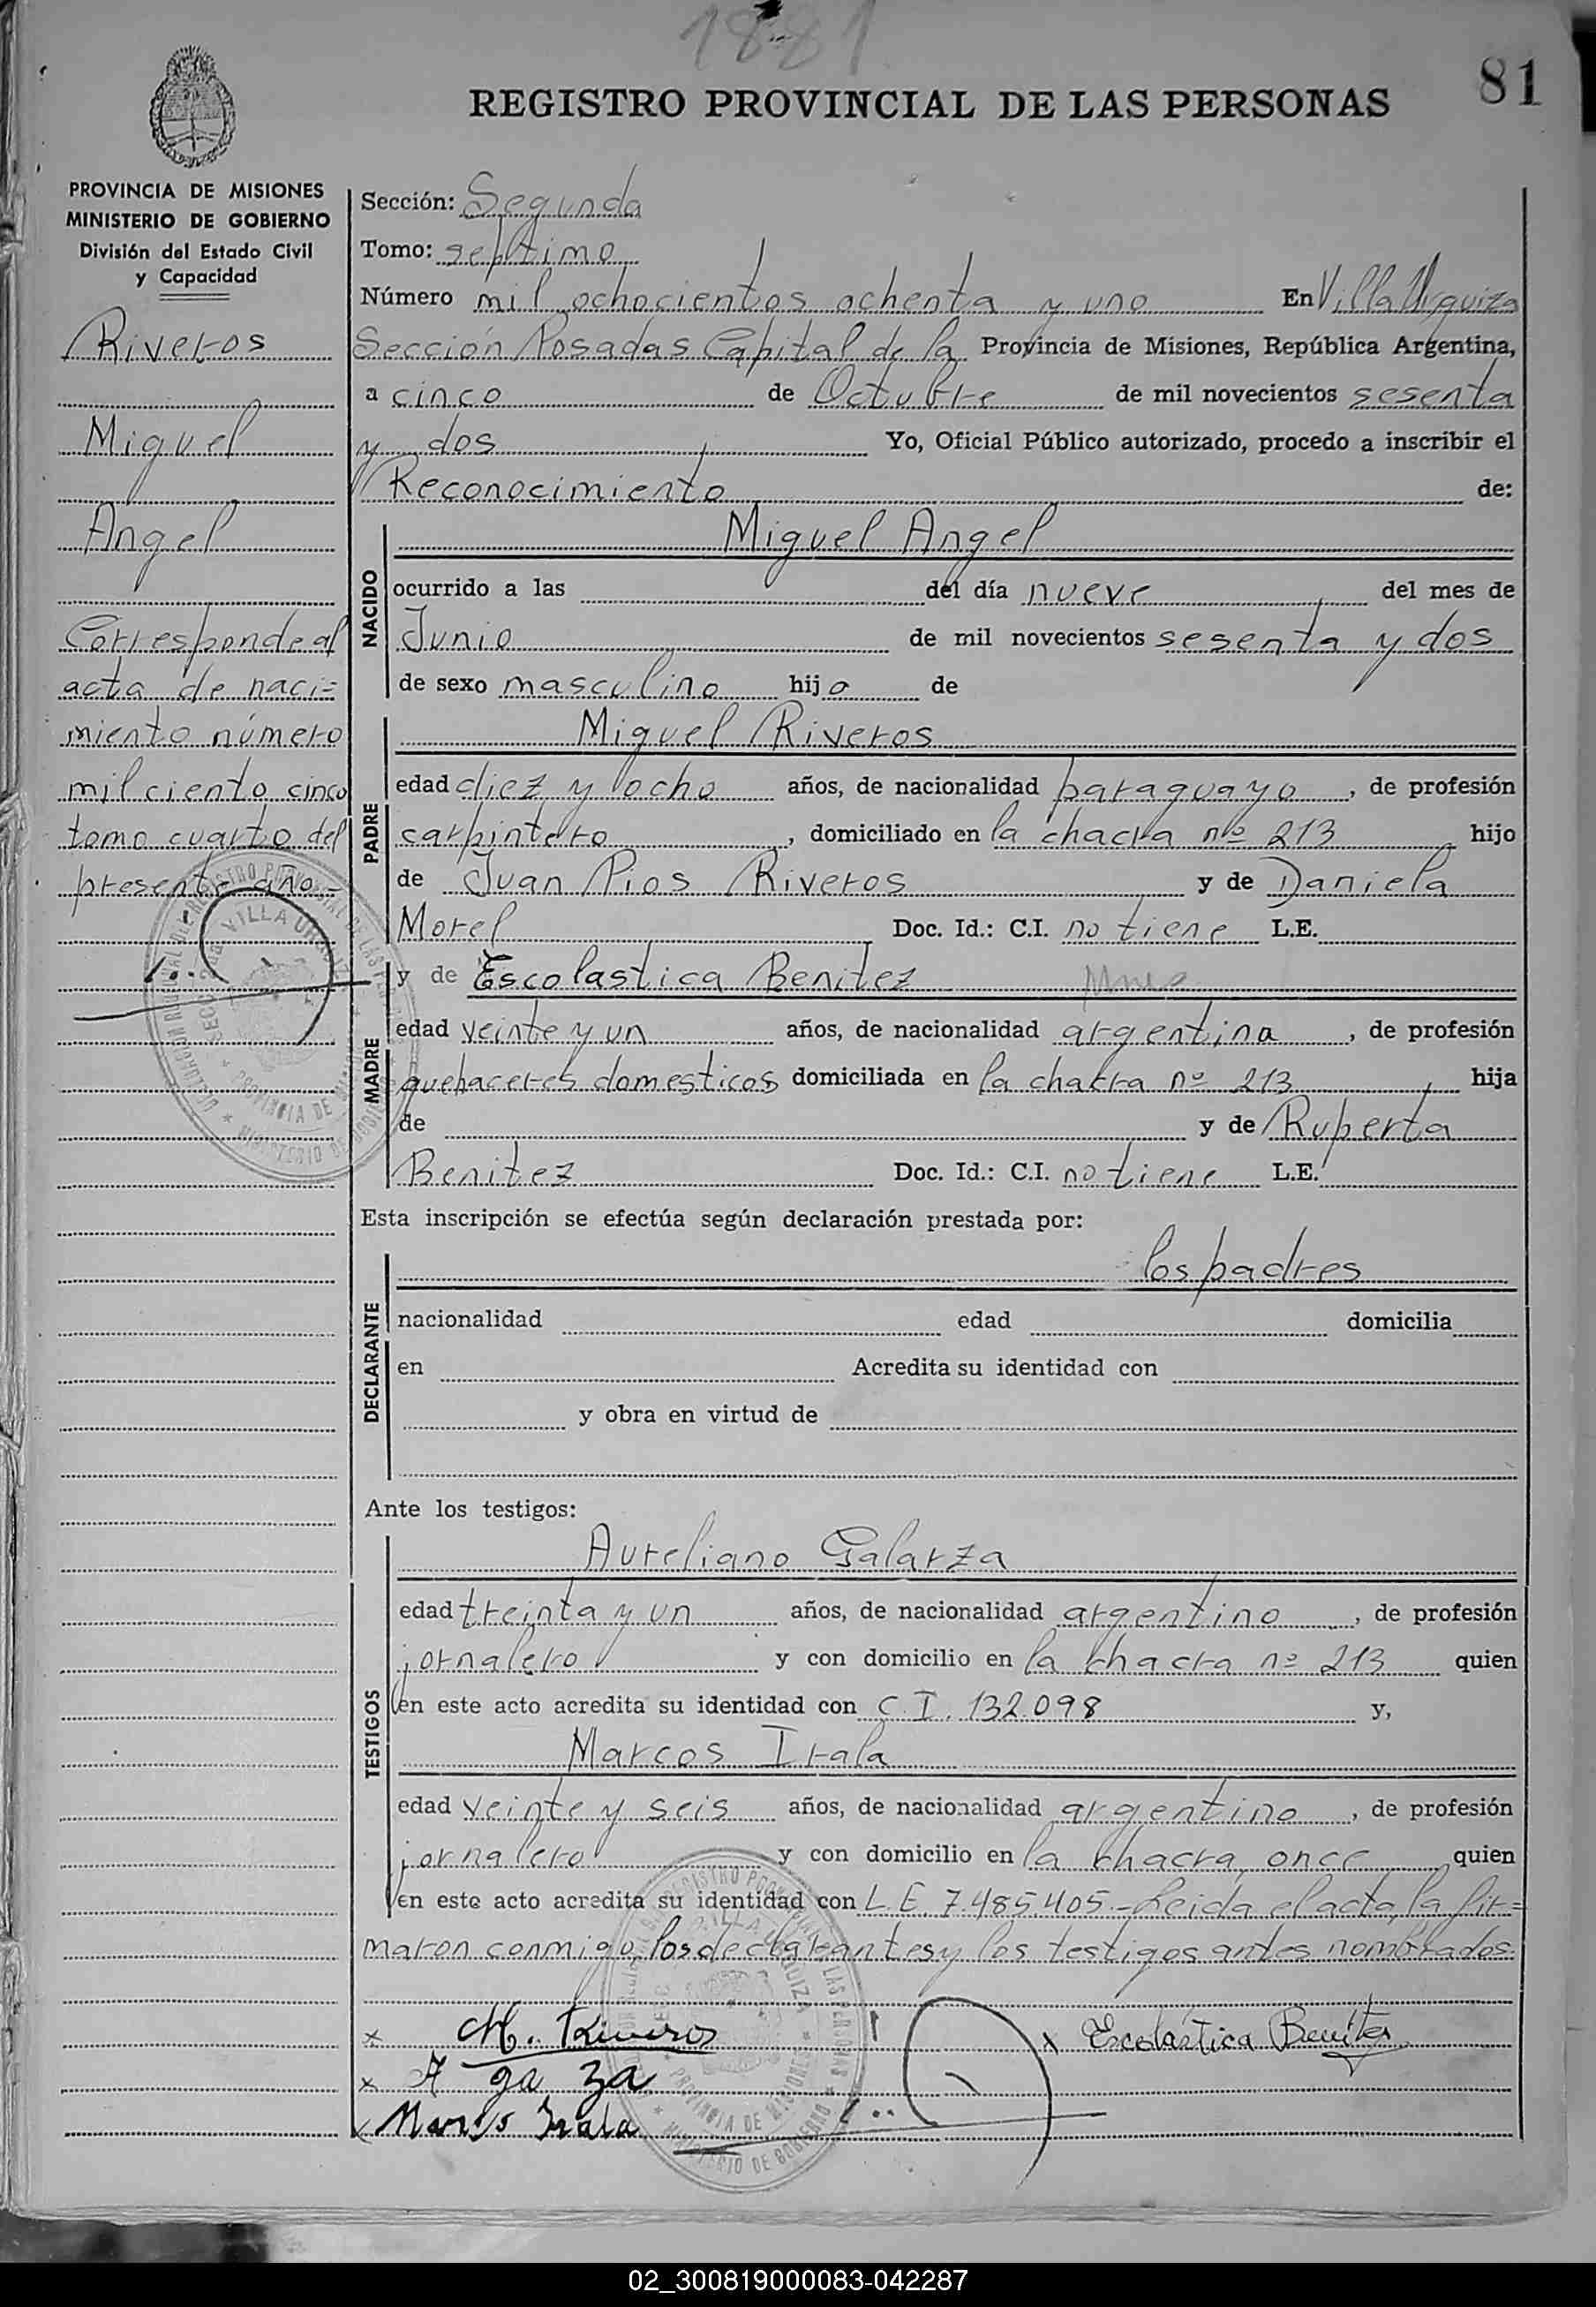 1881
81
REGISTRO PROVINCIAL DE LAS PERSONAS
PROVINCIA DE MISIONES
MINISTERIO DE GOBIERNO
División del Estado Civil
y Capacidad
Riveros
Miguel
Angel
Corresponde al
acta de naci=
miento número
mil ciento cinco
tomo cuarto del
presente año=
Sección: Segunda
Tomo: septimo
Número mil ochocientos ochenta y uno En Villa Urquiza
Sección Posadas Capital de la Provincia de Misiones, República Argentina,
a cinco de Octubre de mil novecientos sesenta
y dos Yo, Oficial Público autorizado, procedo a inscribir el
Reconocimiento de:
NACIDO
Miguel Angel
ocurrido a las del día nueve del mes de
Junio de mil novecientos sesenta y dos
de sexo masculino hijo de
PADRE
Miguel Riveros
edad diez y ocho años, de nacionalidad paraguayo, de profesión
carpintero, domiciliado en la chacra nº 213 hijo
de Juan Pios Riveros y de Daniela
Morel Doc. Id.: C.I. no tiene L.E.
y de Escolastica Benitez
MADRE
edad veinte y un años, de nacionalidad argentina, de profesión
quehaceres domesticos domiciliada en la chacra nº 213 hija
de y de Ruperta
Benitez Doc. Id.: C.I. no tiene L.E.
Esta inscripción se efectúa según declaración prestada por:
DECLARANTE
los padres
nacionalidad edad domicilia
en Acredita su identidad con
y obra en virtud de
Ante los testigos:
TESTIGOS
Aureliano Galarza
edad treinta y un años, de nacionalidad argentino, de profesión
jornalero y con domicilio en la chacra nº 213 quien
en este acto acredita su identidad con C.I. 132.098 y,
Marcos Irala
edad veinte y seis años, de nacionalidad argentino, de profesión
jornalero y con domicilio en la chacra once quien
en este acto acredita su identidad con L.E. 7.485.405.- Leida el acta, la fir=
maron conmigo, los declarantes y los testigos antes nombrados.
x M. Riveros x Escolástica Benitez
x A ga za
x Marcos Irala
02_300819000083-042287